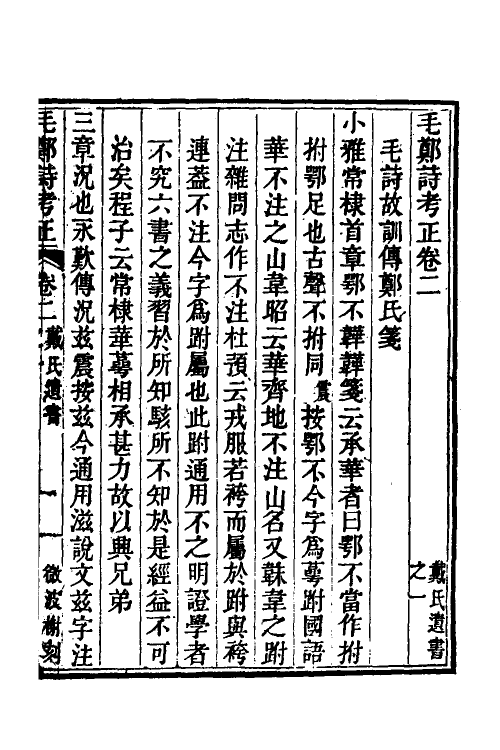 毛鄭詩考正卷二
戴氏遺書
之一
毛詩故訓傳鄭氏箋
小雅常棣首章鄂不韡韡箋云承華者曰鄂不當作拊
拊鄂足也古聲不拊同震按鄂不今字爲萼跗國語
華不注之山韋昭云華齊地不注山名又韎韋之跗
注雜問志作不注杜預云戎服若袴而屬於跗與袴
連葢不注今字爲跗屬也此跗通用不之明證學者
不究六書之義習於所知駭所不知於是經益不可
治矣程子云常棣華萼相承甚力故以興兄弟
三章況也永歎傳況兹震按兹今通用滋說文兹字注
毛鄭詩考正
卷二
戴氏遺書
一
微波榭刻